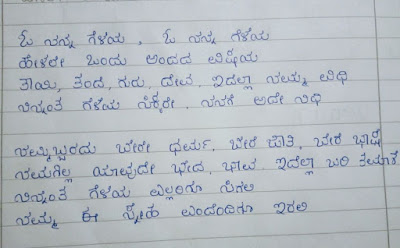 ಓ ನನ್ನ ಗೆಳೆಯ, ಓ ನನ್ನ ಗೆಳೆಯ
ಹೇಳಲೇ ಒಂದು ಅಂದದ ವಿಷಯ
ತಾಯಿ, ತಂದೆ, ಗುರು, ದೇವ, ಇದೆಲ್ಲಾ ನಮ್ಮ ವಿಧಿ
ನಿನ್ನಂತ ಗೆಳೆಯ ಸಿಕ್ಕರೇ, ನನಗೆ ಅದೇ ನಿಧಿ
ನಮ್ಮಿಬ್ಬರದು ಬೇರೇ ಧರ್ಮ, ಬೇರೆ ಜಾತಿ, ಬೇರೆ ಭಾಷೆ
ನಮಗಿಲ್ಲ ಯಾವುದೇ ಭೇದ, ಭಾವ. ಇದೆಲ್ಲಾ ಬರಿ ತಮಾಷೆ
ನಿನ್ನಂತ ಗೆಳೆಯ ಎಲ್ಲರಿಗೂ ಸಿಗಲಿ
ನಮ್ಮ ಈ ಸ್ನೇಹ ಎಂದೆಂದಿಗೂ ಇರಲಿ